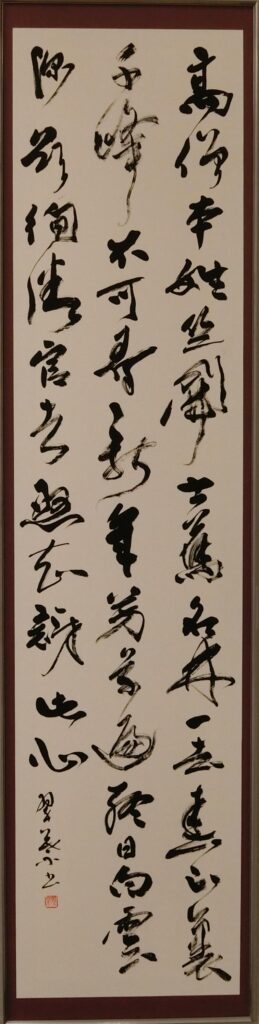 高僧本姓竺開士舊名林一去春山裏
千峰不可尋新年芳草遍終日白雲
深欲徇微官去懸知訝此心
翠書